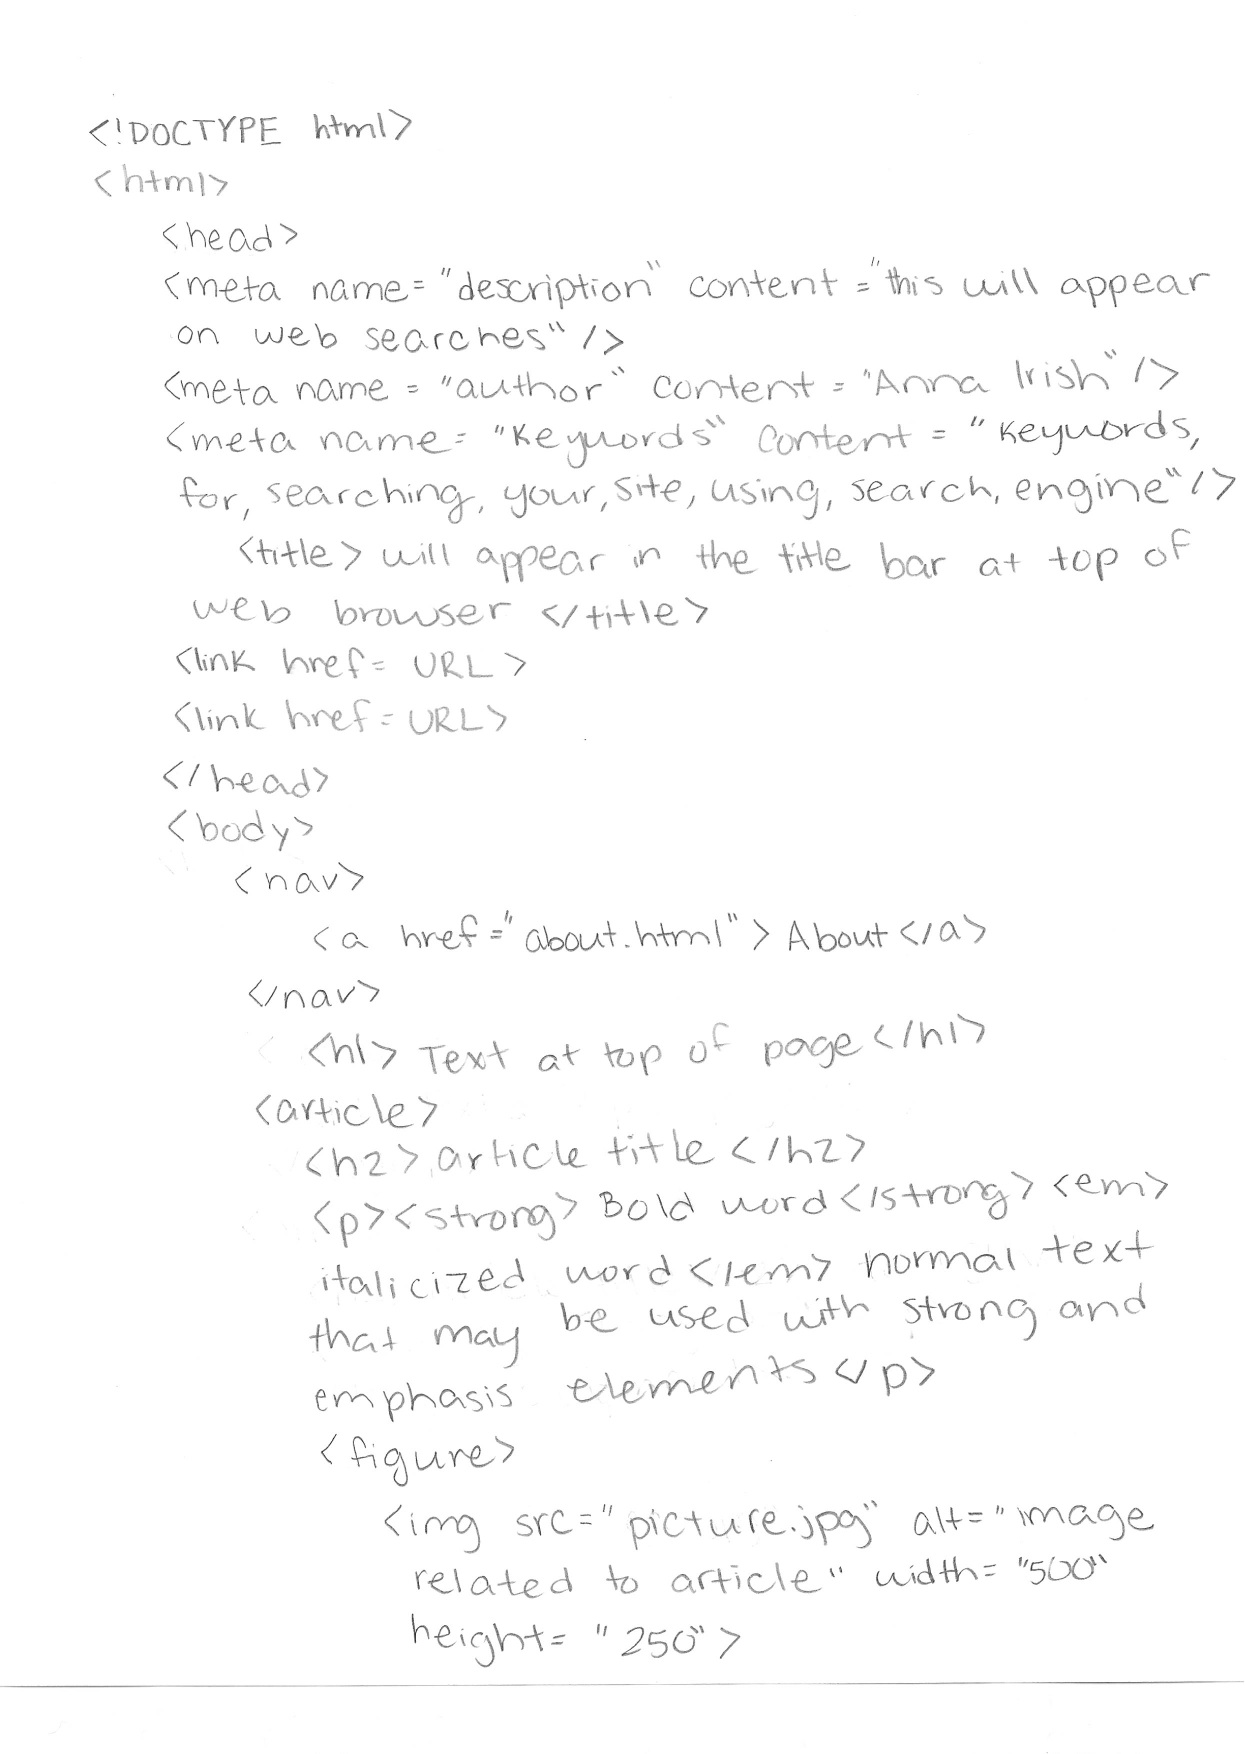 <!DOCTYPE html>
<html>
<head>
<meta name="description" content="this will appear
on web searches"/>
<meta name="author" content="Anna Irish"/>
<meta name="Keywords" content="Keywords,
for, searching, your, site, using, search, engine"/>
<title> will appear in the title bar at top of
web browser </title>
<link href=URL>
<link href=URL>
</head>
<body>
<nav>
<a href="about.html"> About </a>
</nav>
<h1> Text at top of page </h1>
<article>
<h2> article title </h2>
<p><strong> Bold word </strong> <em>
italicized word </em> normal text
that may be used with strong and
emphasis elements </p>
<figure>
<img src="picture.jpg" alt="image
related to article" width="500"
height="250">